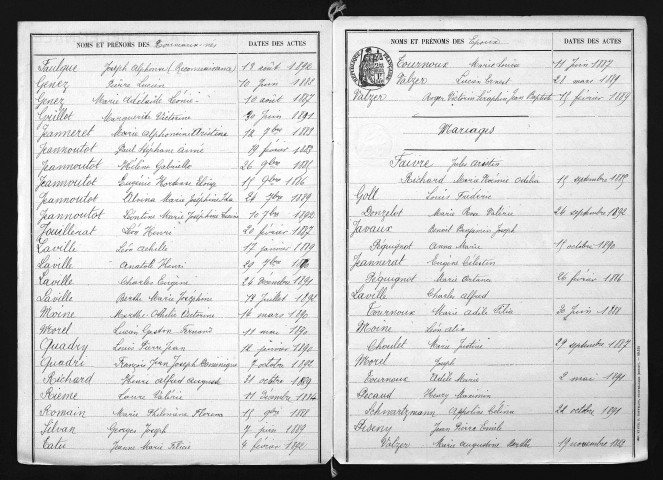 NOMS ET PRÉNOMS DES Nouveaux-nés DATES DES ACTES
Faulque Joseph Alphonse (Reconnaissance) 13 août 1890
Genez Pierre Lucien 10 Juin 1888
Genez Marie Adélaïde Léonie 10 août 1887
Grillot Marguerite Victorine 20 Juin 1891
Jeanneret Marie Alphonsine Aristine 1889
Jeannoutot Paul Stéphane Aimé 19 février
Jeannoutot Hélène Gabrielle 26 9bre
Jeannoutot Eugénie Hortense Eloïse 15 9bre 1886
Jeannoutot Albina Marie Joséphine Ida 24 7bre 1889
Jeannoutot Léontine Marie Joséphine 10 7bre 1892
Jouillerat Léo Henri 20 février 1887
Laville Léo Achille 17 janvier 1889
Laville Anatole Henri 29 7bre
Laville Charles Eugène 24 Décembre 1891
Laville Berthe Marie Joséphine 18 Juillet 1892
Moine Marthe Othilie Victorine 16 mars 1890
Morel Lucien Gaston Fernand 11 mai 1890
Quadry Louis Pierre Jean 12 janvier 1890
Quadri François Jean Joseph Dominique 7 octobre 1892
Richard Henri Alfred August 21 octobre 1889
Rième Laure Valérie 11 Décembre
Romain Marie Philomène Florence 15 9bre 1888
Silvan Georges Joseph 7 juin 1889
Tatu Jeanne Marie Filine 4 février 1892
NOMS ET PRÉNOMS DES Epoux DATES DES ACTES
RÉPUBLIQUE FRANÇAISE
Tournoux Marie Louise 11 Juin 1887
Valzer Lucien Ernest 21 mars 1889
Valzer Roger Victorin Séraphin Jean Baptiste 15 février 1889
Mariages
Faivre Jules Aristin
Richard Marie Noémie Odilia 15 septembre 1889
Goll Louis Frédéric
Donzelot Marie Rose Valérie 24 septembre 1892
Javaux Benoit Benjamin Joseph
Péquignot Anna Marie 15 octobre 1890
Jeannerat Eugène Célestin
Péquignot Marie Octavie 26 février 1886
Laville Charles Alfred
Tournoux Marie Adèle Filie 30 Juin 1888
Moine Léon
Choulet Marie Justine 29 septembre 1887
Morel Joseph
Tournoux Adèle Marie 2 mai 1891
Picaud Henry Maximin
Schwartzmann Appoline Célina 24 octobre 1891
Piseny Jean Pierre Emile
Valzer Marie Augustine Marthe 19 novembre